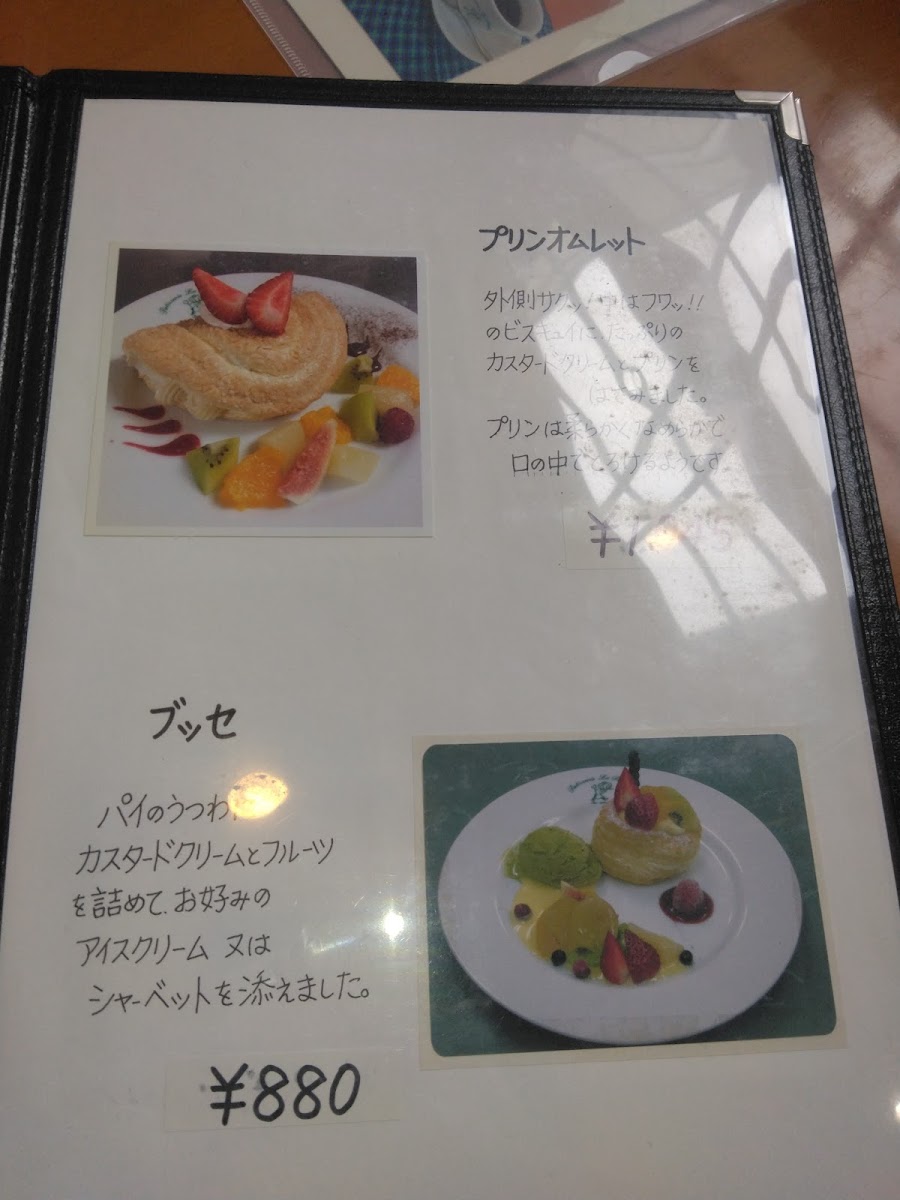 プリンオムレット
外側サクッ!中はフワッ!!
のビスキュイに、たっぷりの
カスタードクリームとプリンを
はさみました。
プリンは柔らかくなめらかで
口の中でとろけるようです
ブッセ
パイのうつわ
カスタードクリームとフルーツ
を詰めて、お好みの
アイスクリーム 又は
シャーベットを添えました。
¥880